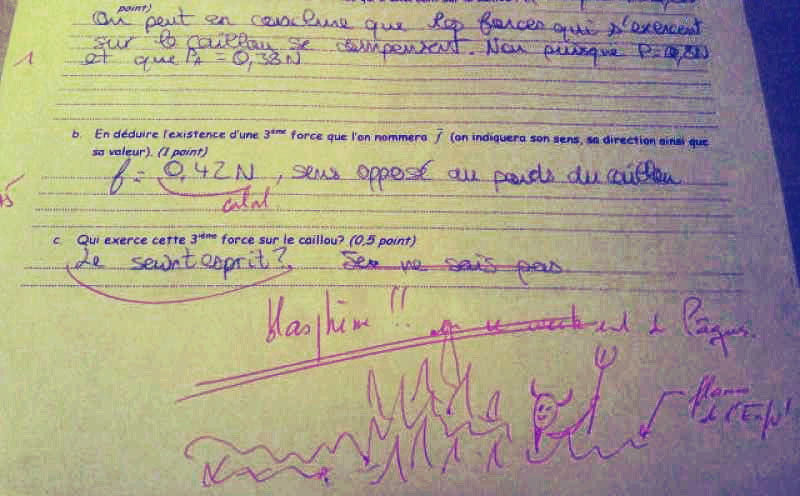 point)
On peut en conclure que les forces qui s'exercent
sur le caillou se compensent. Non puisque P = 0,8N
1
et que PA = 0,38N
b. En déduire l'existence d'une 3ème force que l'on nommera f (on indiquera son sens, sa direction ainsi que
sa valeur). (1 point)
f = 0,42N, sens opposé au poids du caillou
calcul
c. Qui exerce cette 3ième force sur le caillou? (0,5 point)
Le saint esprit? Je ne sais pas
blasphème !! en ce week end de Pâques.
flammes
de l'Enfer!